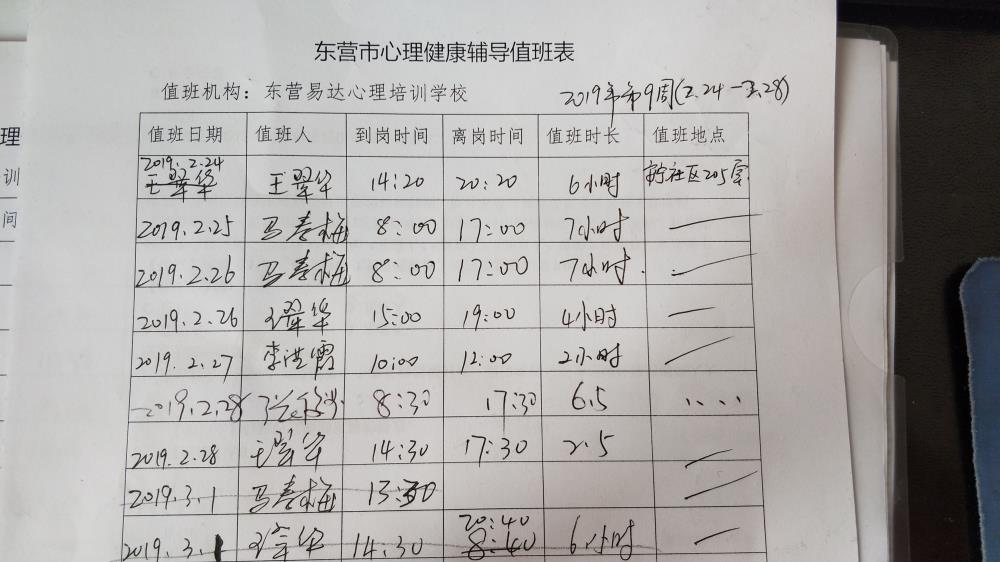 东营市心理健康辅导值班表
值班机构：东营易达心理培训学校 2019年第9周(2.24-2.28)
值班日期 值班人 到岗时间 离岗时间 值班时长 值班地点
2019.2.24
王翠华 王翠华 14:20 20:20 6小时 社区205室
2019.2.25 马春梅 8:00 17:00 7小时
2019.2.26 马春梅 8:00 17:00 7小时.
2019.2.26 王翠华 15:00 19:00 4小时
2019.2.27 李洪霞 10:00 12:00 2小时
2019.2.28 8:30 17:30 6.5
2019.2.28 王翠华 14:30 17:30 2.5
2019.3.1 马春梅 13:30
20:40
2019.3.1 王翠华 14:30 8:40 6小时
理
训
间